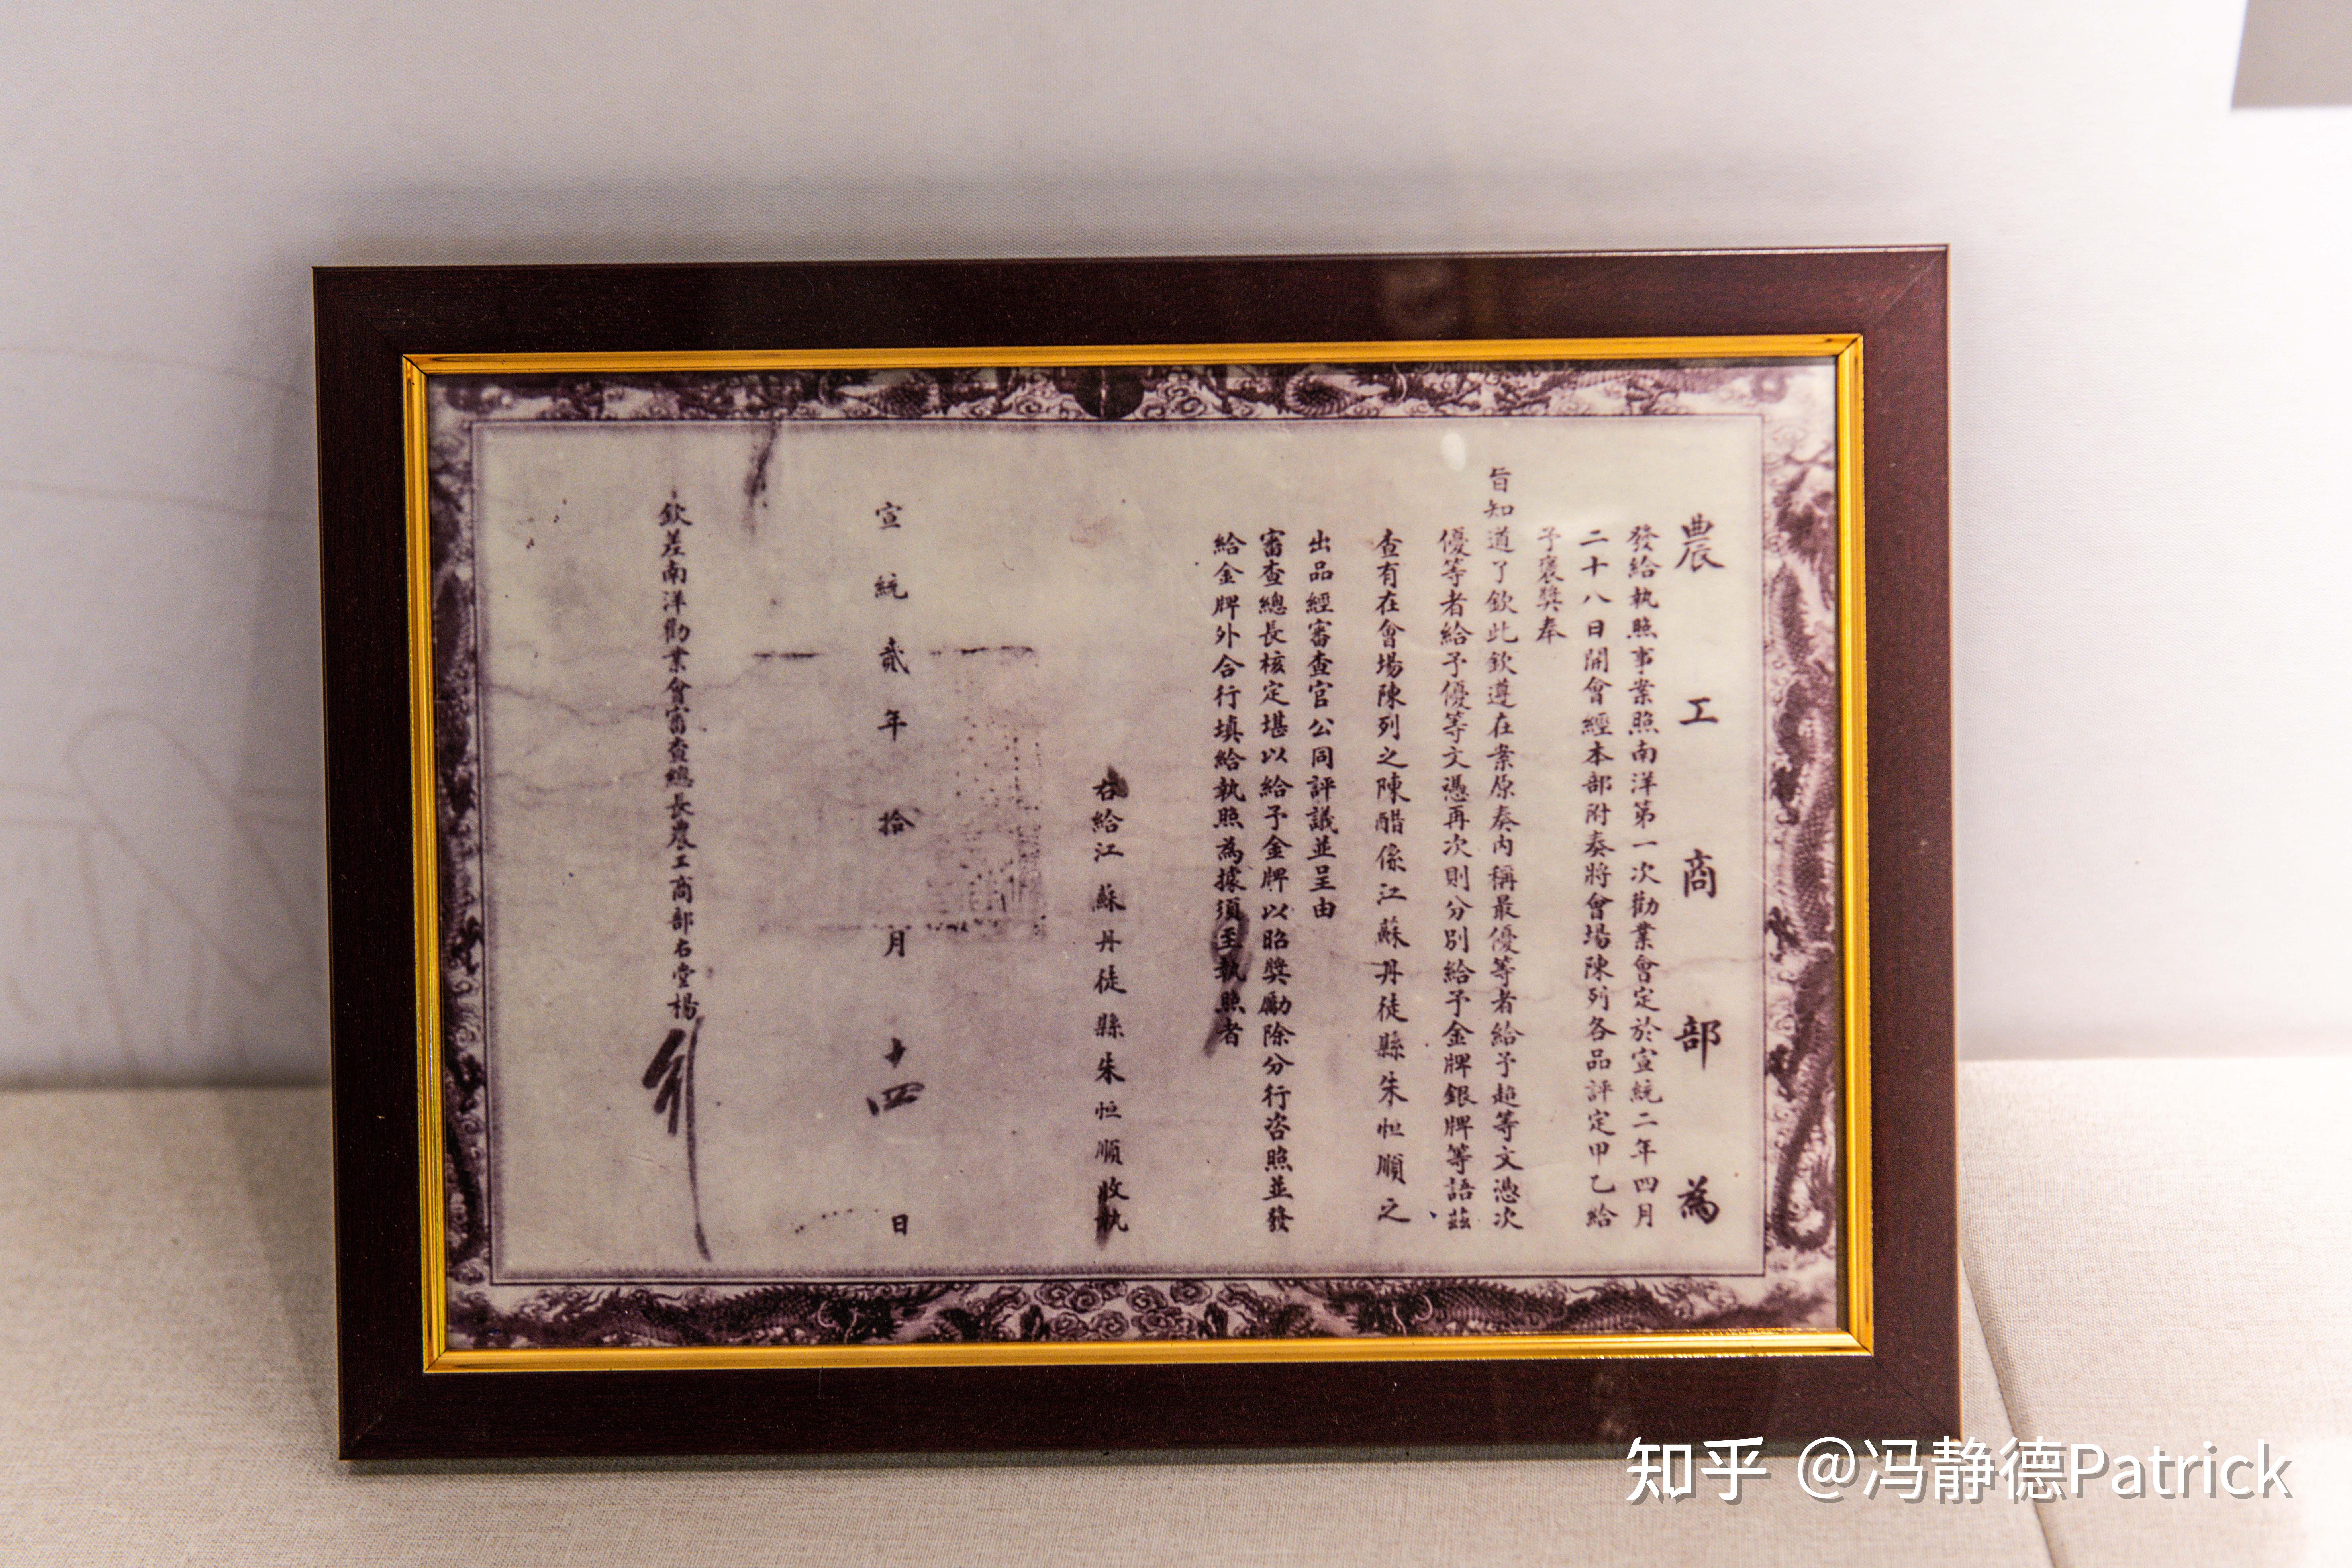 農工商部為
發給執照事業照南洋第一次勸業會定於宣統二年四月
二十八日開會經本部附奏將會場陳列各品評定甲乙給
予褒獎奉
旨知道了欽此欽遵在案原奏內稱最優等者給予超等文憑次
優等者給予優等文憑再次則分別給予金牌銀牌等語茲
查有在會場陳列之陳醋係江蘇丹徒縣朱恒順之
出品經審查官公同評議並呈由
審查總長核定堪以給予金牌以昭獎勵除分行咨照並發
給金牌外合行填給執照為據須至執照者
右給江蘇丹徒縣朱恒順收執
宣統貳年拾月十四日
欽差南洋勸業會審查總長農工商部右堂楊
知乎 @冯静德Patrick